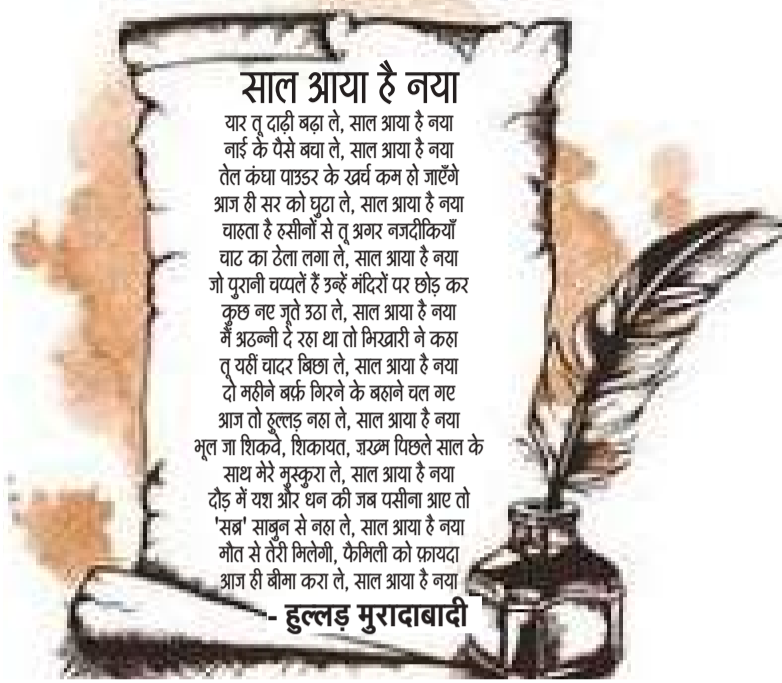 साल आया है नया
यार तू दाढ़ी बढ़ा ले, साल आया है नया
नाई के पैसे बचा ले, साल आया है नया
तेल कंघा पाउडर के खर्च कम हो जाएँगे
आज ही सर को घुटा ले, साल आया है नया
चाहता है हसीनों से तू अगर नजदीकियाँ
चाट का ठेला लगा ले, साल आया है नया
जो पुरानी चप्पलें हैं उन्हें मंदिरों पर छोड़ कर
कुछ नए जूते उठा ले, साल आया है नया
मैं अठन्नी दे रहा था तो भिखारी ने कहा
तू यहीं चादर बिछा ले, साल आया है नया
दो महीने बर्फ़ गिरने के बहाने चल गए
आज तो हुल्लड़ नहा ले, साल आया है नया
भूल जा शिकवे, शिकायत, ज़ख्म पिछले साल के
साथ मेरे मुस्कुरा ले, साल आया है नया
दौड़ में यश और धन की जब पसीना आए तो
'सब्र' साबुन से नहा ले, साल आया है नया
मौत से तेरी मिलेगी, फैमिली को फ़ायदा
आज ही बीमा करा ले, साल आया है नया
- हुल्लड़ मुरादाबादी